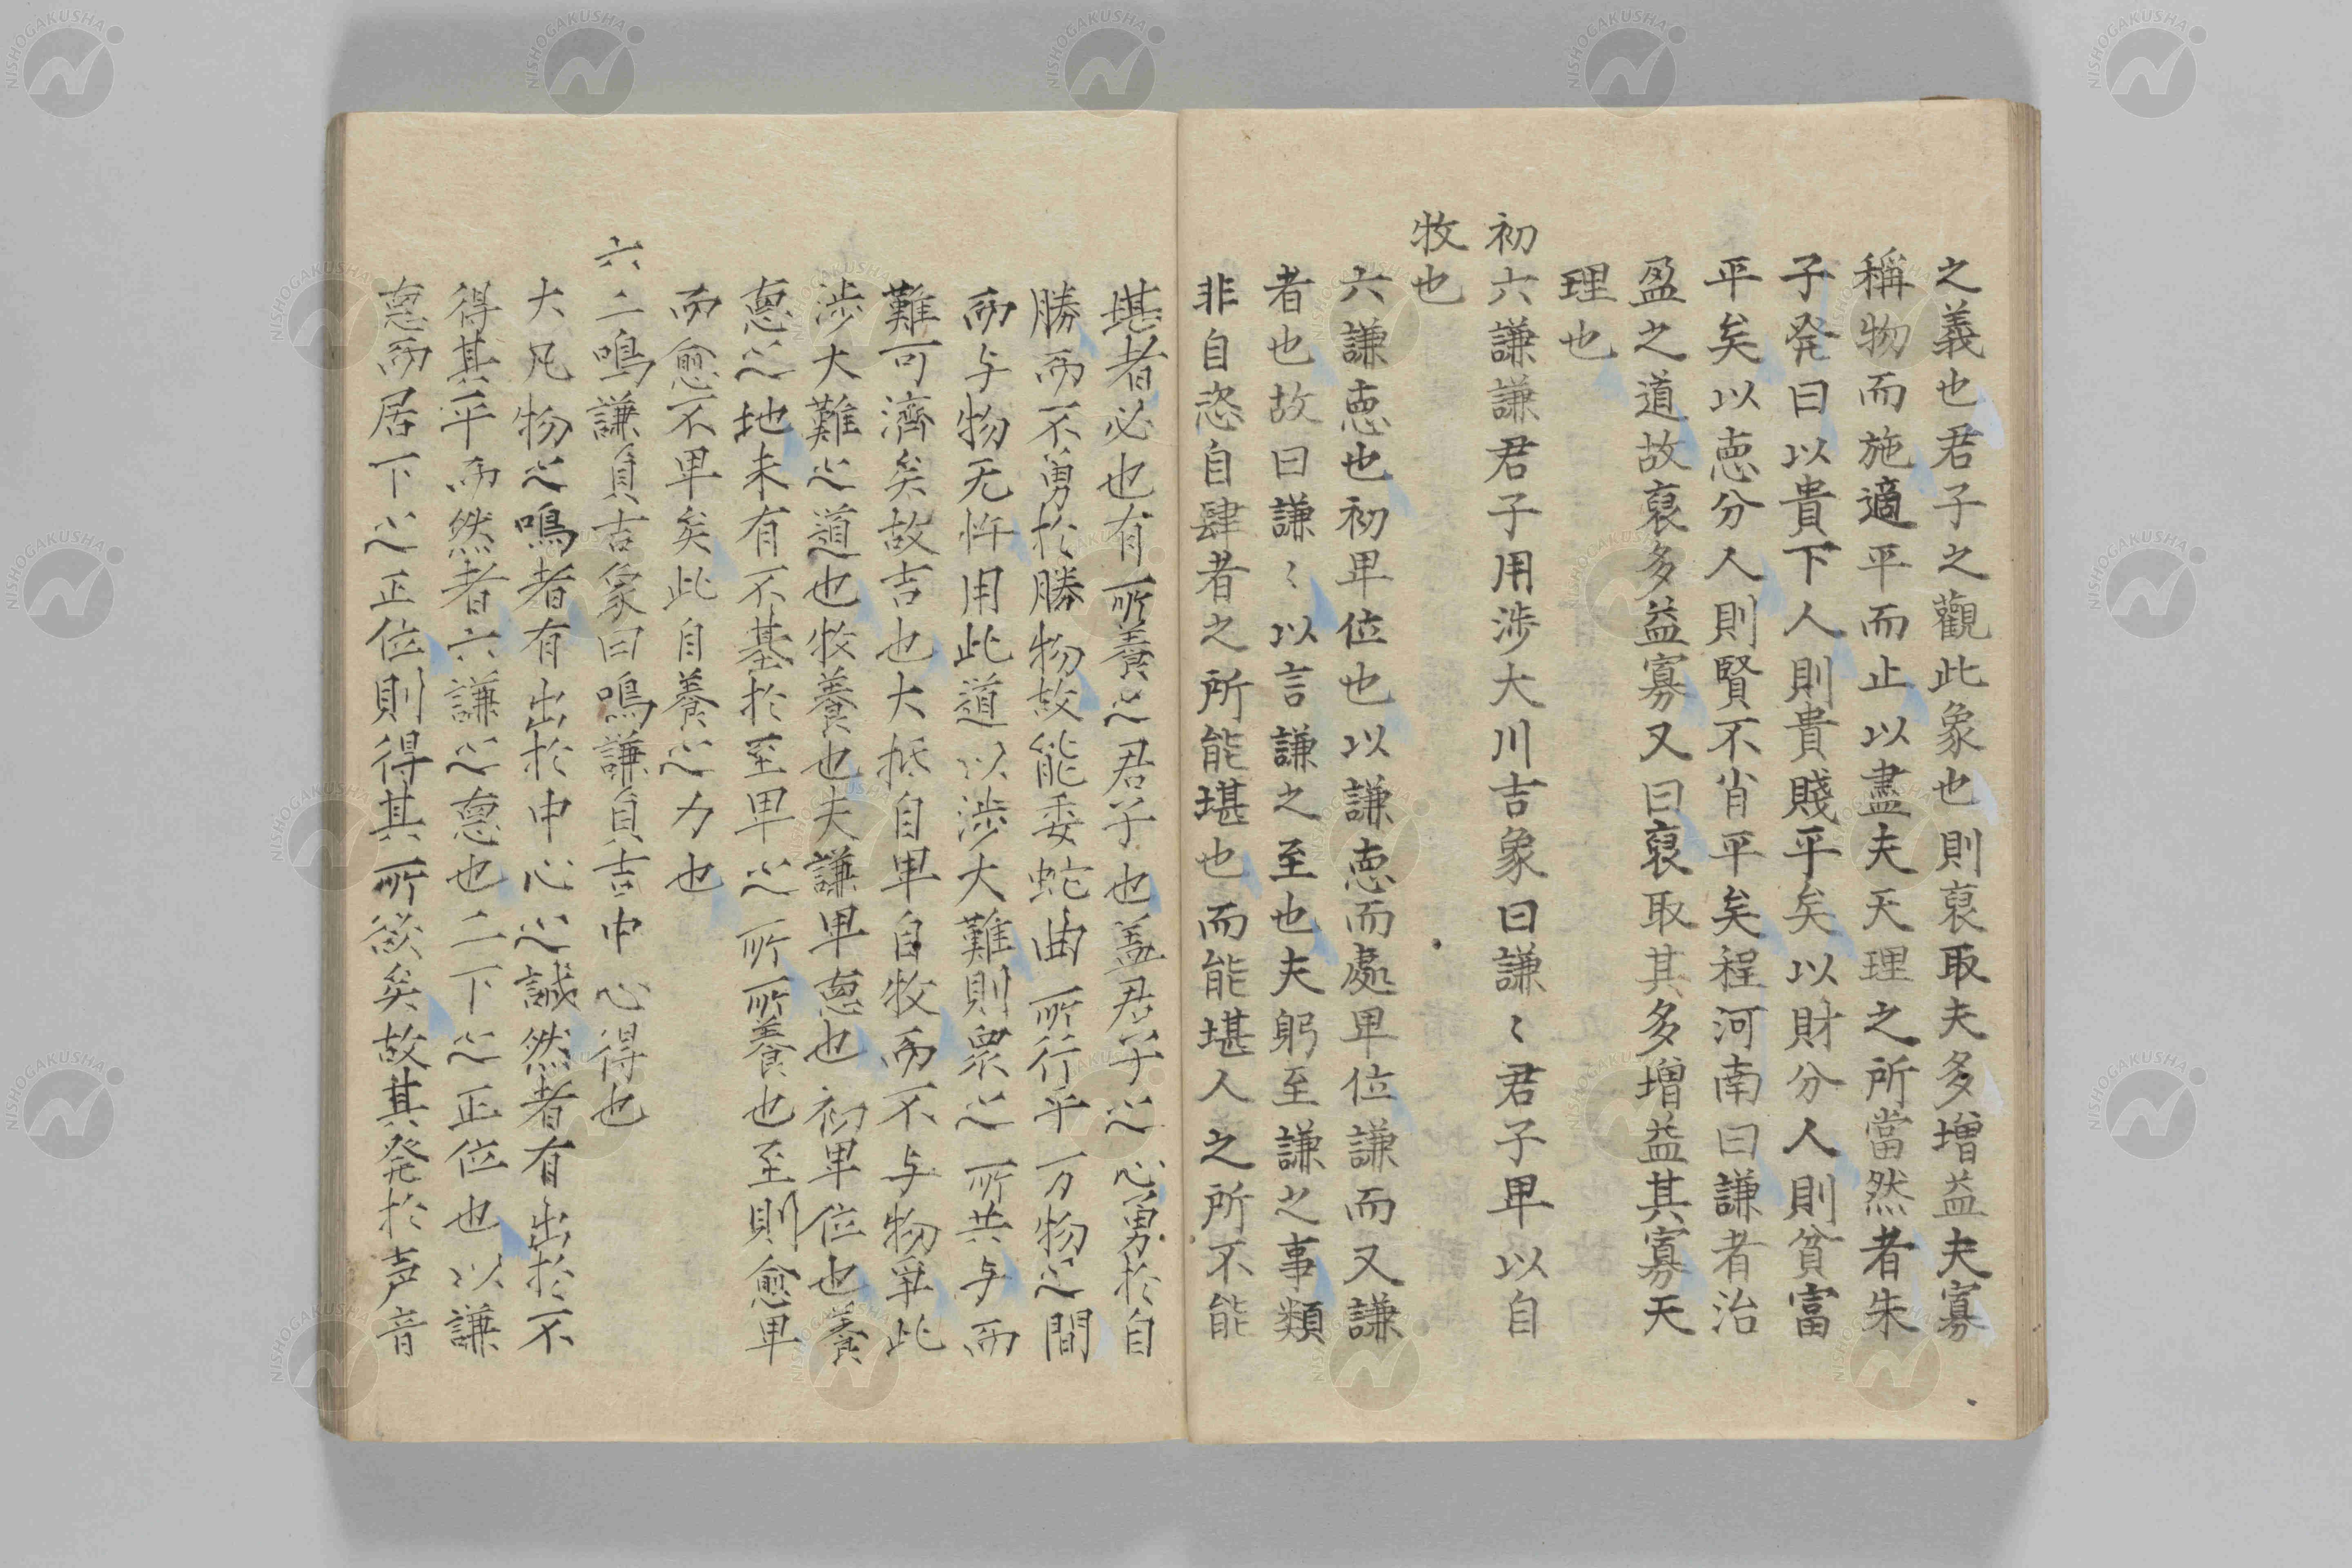 之義也君子之觀此象也則裒取夫多增益夫寡
稱物而施適平而止以盡夫天理之所當然者朱
子発曰以貴下人則貴賤平矣以財分人則貧富
平矣以悳分人則賢不肖平矣程河南曰謙者治
盈之道故裒多益寡又曰裒取其多增益其寡天
理也
初六謙謙君子用涉大川吉象曰謙〻君子卑以自
牧也
六謙悳也初卑位也以謙悳而處卑位謙而又謙
者也故曰謙〻以言謙之至也夫躬至謙之事類
非自恣自肆者之所能堪也而能堪人之所不能
堪者必也有所養之君子也盖君子之心勇於自
勝而不勇於勝物故能委蛇曲所行乎万物之間
而与物无忤用此道以涉大難則眾之所共与而
難可濟矣故吉也大抵自卑自牧而不与物爭此
涉大難之道也牧養也夫謙卑悳也初卑位也養
悳之地未有不基於至卑之所所養也至則愈卑
而愈不卑矣此自養之力也
六二鳴謙貞吉象曰鳴謙貞吉中心得也
大凡物之鳴者有出於中心之誠然者有出於不
得其平而然者六謙之悳也二下之正位也以謙
悳而居下之正位則得其所欲矣故其発於声音
NISHOGAKUSHA